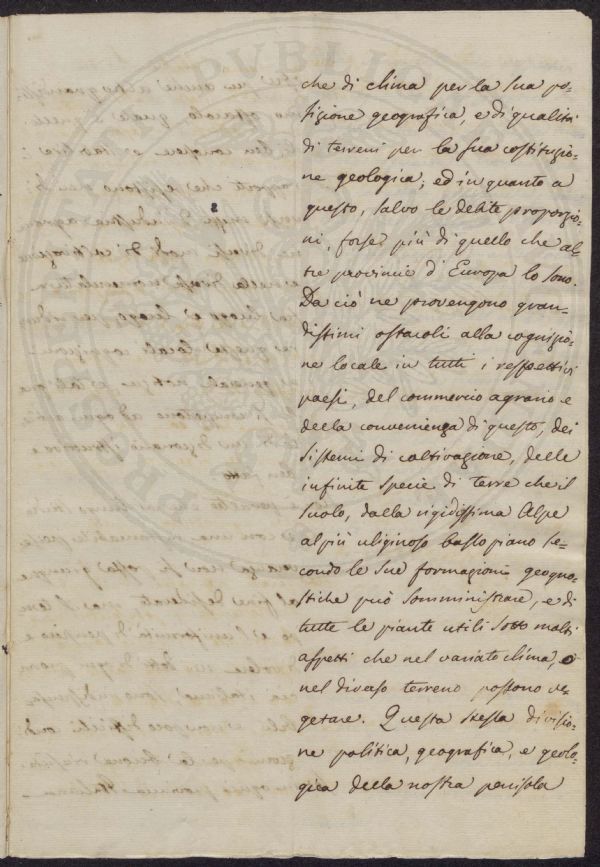 che di clima per la sua po-
sizione geografica, e di qualità
di terreni per la sua costituzio-
ne geologica; ed in quanto a
questo, salvo le debite proporzio-
ni, forse più di quello che al-
tre provincie d'Europa lo sono.
Da ciò ne provengono gran-
dissimi ostacoli alla cognizio-
ne locale in tutti i respettivi
paesi, del commercio agrario e
della convenienza di questo, dei
sistemi di coltivazione, delle
infinite specie di terre che il
suolo, dalla rigidissima Alpe
al più uliginoso basso piano se-
condo le sue formazioni geogno-
stiche può somministrare, e di
tutte le piante utili sotto molti
aspetti che nel variato clima, e
nel diverso terreno possono ve-
getare. Questa stessa divisio-
ne politica, geografica, e geolo-
gica della nostra penisola